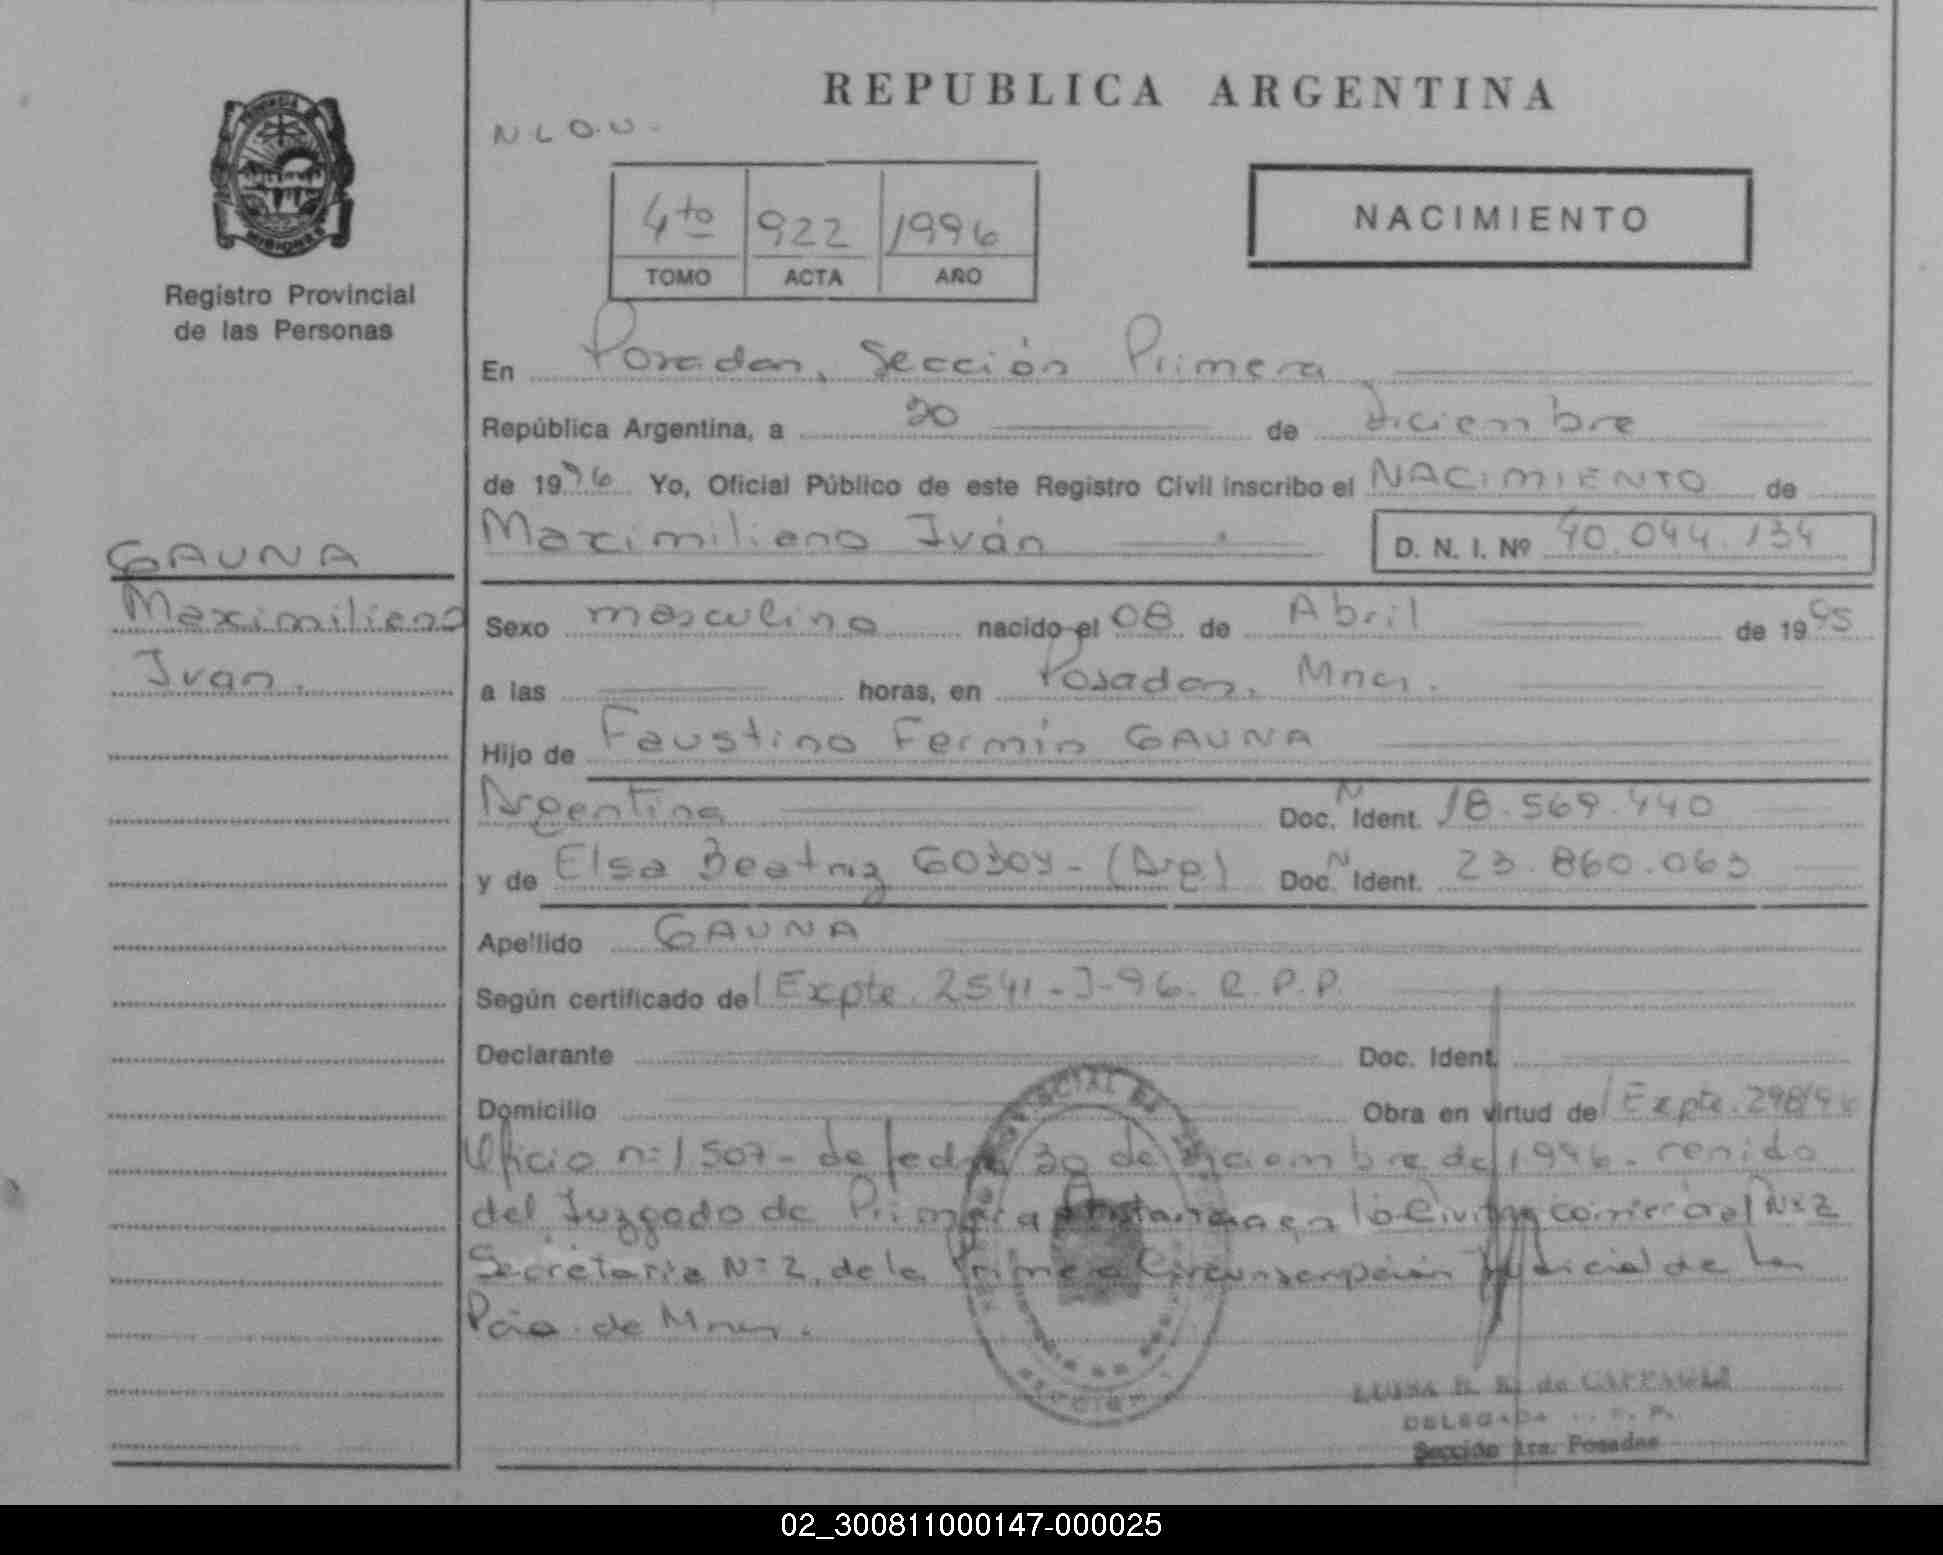 REPUBLICA ARGENTINA
N L O.U.
4to 922 1996
TOMO ACTA AÑO
NACIMIENTO
MISIONES
Registro Provincial
de las Personas
En Posadas, Sección Primera,
República Argentina, a 30 de diciembre
de 1996 Yo, Oficial Público de este Registro Civil inscribo el NACIMIENTO de
Maximiliano Iván D. N. I. Nº 40.044.134
GAUNA
Maximiliano
Ivan.
Sexo masculino nacido el 08 de Abril de 1995
a las horas, en Posadas, Mnes.
Hijo de Faustino Fermín GAUNA
Argentina Doc. N Ident. 18.569.440
y de Elsa Beatriz GODOY - (Arg) Doc. N Ident. 23.860.063
Apellido GAUNA
Según certificado del Expte. 2541-J-96. R.P.P.
Declarante Doc. Ident.
Domicilio Obra en virtud del Expte. 298/96
Oficio nº 1507- de fecha 30 de Diciembre de 1996. renido
del Juzgado de Primera Instancia en lo Civil y comercial Nº 2
Secretaria Nº 2, de la Primera Circunscripción Judicial de la
Pcia. de Mnes.
LUISA R. de
DELEGADA R. P.
Sección 1ra. Posadas
02_300811000147-000025